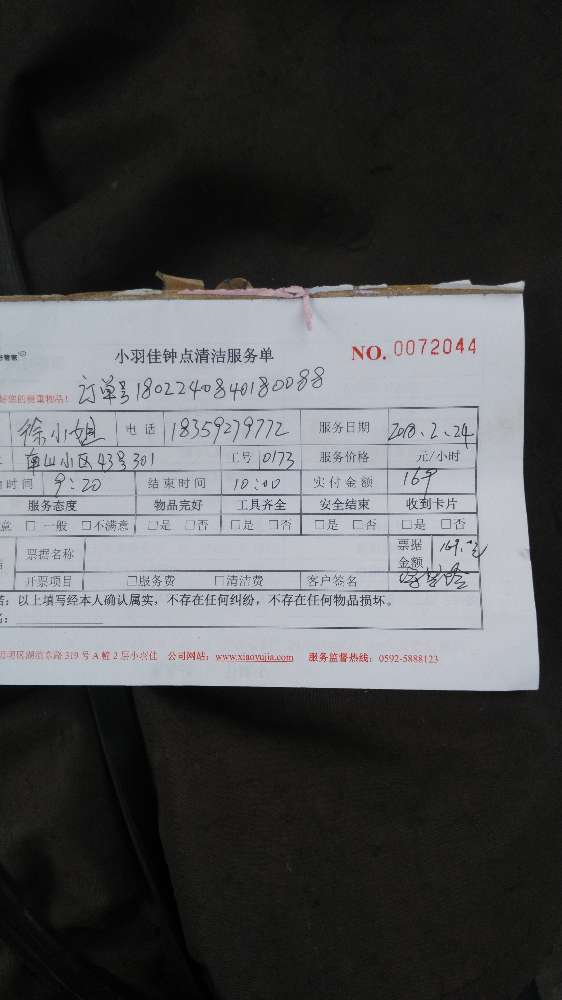 小羽佳钟点清洁服务单 NO. 0072044
贵重物品！ 订单号 1802240840180088
徐小姐 电话 18359279772 服务日期 2018.2.24
南山小区43号301 工号 0173 服务价格 元/小时
时间 9:20 结束时间 10:00 实付金额 169
服务态度 物品完好 工具齐全 安全结束 收到卡片
意 □ 一般 □不满意 □是 □否 □是 □否 □是 □否 □是 □否
票据名称 票据金额 169.元
开票项目 □服务费 □清洁费 客户签名
：以上填写经本人确认属实，不存在任何纠纷，不存在任何物品损坏。
明区湖滨东路 319 号 A 幢 2 层小羽佳 公司网站：www.xiaoyujia.com 服务监督热线：0592-5888123